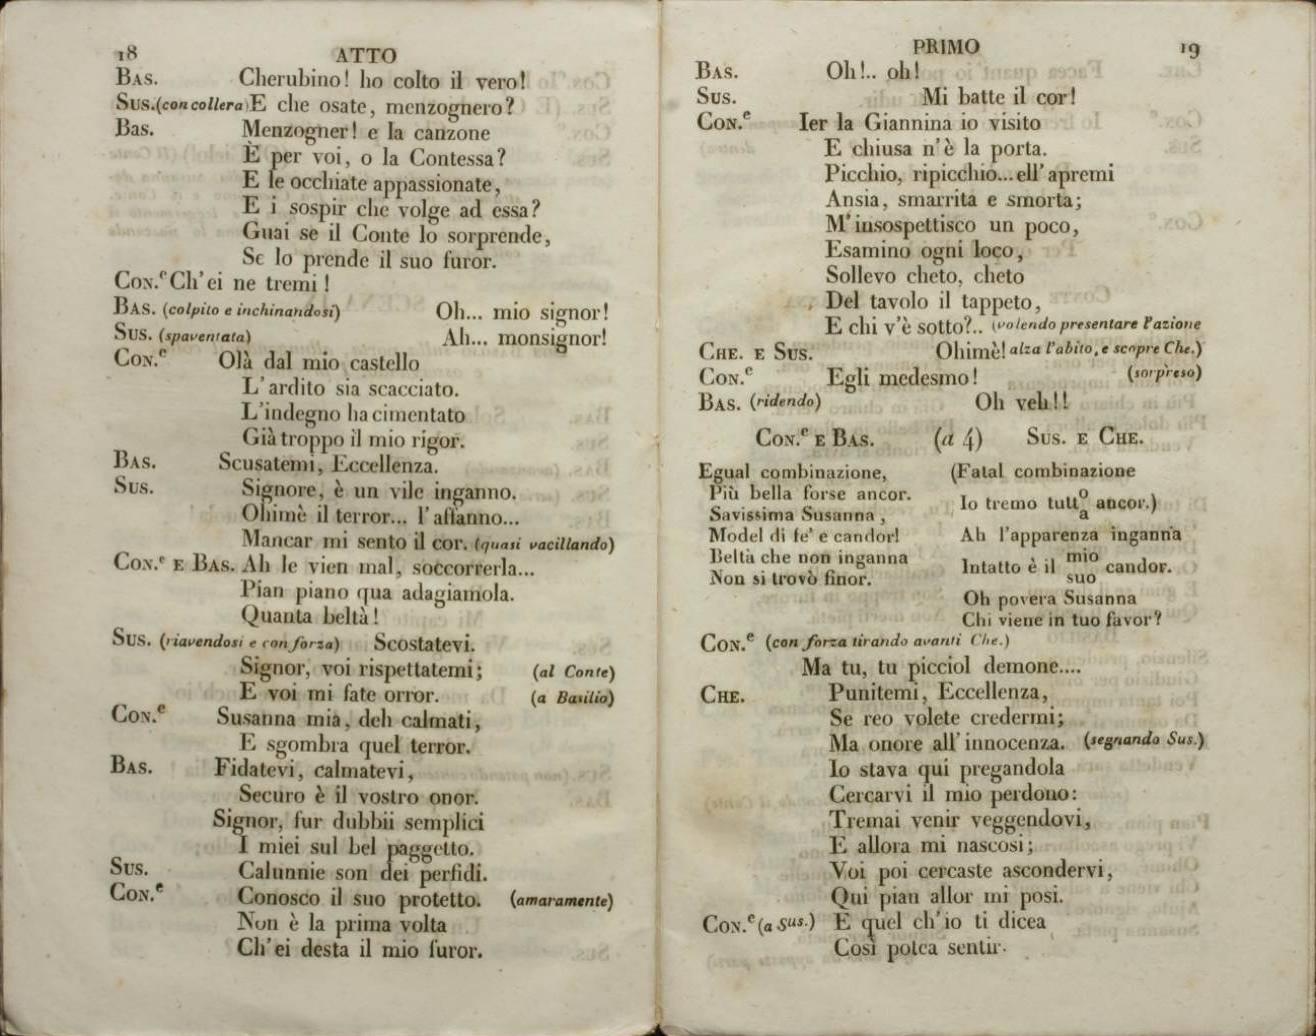 18 ATTO
BAS. Cherubino! ho colto il vero!
SUS.(con collera) E che osate, menzognero?
BAS. Menzogner! e la canzone
È per voi, o la Contessa?
E le occhiate appassionate,
E i sospir che volge ad essa?
Guai se il Conte lo sorprende,
Se lo prende il suo furor.
CON.e Ch'ei ne tremi!
BAS. (colpito e inchinandosi) Oh... mio signor!
SUS. (spaventata) Ah... monsignor!
CON.e Olà dal mio castello
L'ardito sia scacciato.
L'indegno ha cimentato
Già troppo il mio rigor.
BAS. Scusatemi, Eccellenza.
SUS. Signore, è un vile inganno.
Ohimè il terror... l'affanno...
Mancar mi sento il cor. (quasi vacillando)
CON.e E BAS. Ah le vien mal, soccorrerla...
Pian piano qua adagiamola.
Quanta beltà!
SUS. (riavendosi e con forza) Scostatevi.
Signor, voi rispettatemi; (al Conte)
E voi mi fate orror. (a Basilio)
CON.e Susanna mia, deh calmati,
E sgombra quel terror.
BAS. Fidatevi, calmatevi,
Securo è il vostro onor.
Signor, fur dubbii semplici
I miei sul bel paggetto.
SUS. Calunnie son dei perfidi.
CON.e Conosco il suo protetto. (amaramente)
Non è la prima volta
Ch'ei desta il mio furor.
PRIMO 19
BAS. Oh!.. oh!
SUS. Mi batte il cor!
CON.e Ier la Giannina io visito
E chiusa n'è la porta.
Picchio, ripicchio...ell'apremi
Ansia, smarrita e smorta;
M'insospettisco un poco,
Esamino ogni loco,
Sollevo cheto, cheto
Del tavolo il tappeto,
E chi v'è sotto?.. (volendo presentare l'azione
CHE. E SUS. Ohimè! alza l'abito, e scopre Che.)
CON.e Egli medesmo! (sorpreso)
BAS. (ridendo) Oh veh!!
CON.e E BAS. (a 4) SUS. E CHE.
Egual combinazione,
Più bella forse ancor.
Savissima Susanna,
Model di fe' e candor!
Beltà che non inganna
Non si trovò finor.
(Fatal combinazione
Io tremo tutt o/a ancor.)
Ah l'apparenza inganna
Intatto è il mio/suo candor.
Oh povera Susanna
Chi viene in tuo favor?
CON.e (con forza tirando avanti Che.)
Ma tu, tu picciol demone....
CHE. Punitemi, Eccellenza,
Se reo volete credermi;
Ma onore all'innocenza. (segnando Sus.)
Io stava qui pregandola
Cercarvi il mio perdono:
Tremai venir veggendovi,
E allora mi nascosi;
Voi poi cercaste ascondervi,
Qui pian allor mi posi.
CON.e (a Sus.) E quel ch'io ti dicea
Così potea sentir.